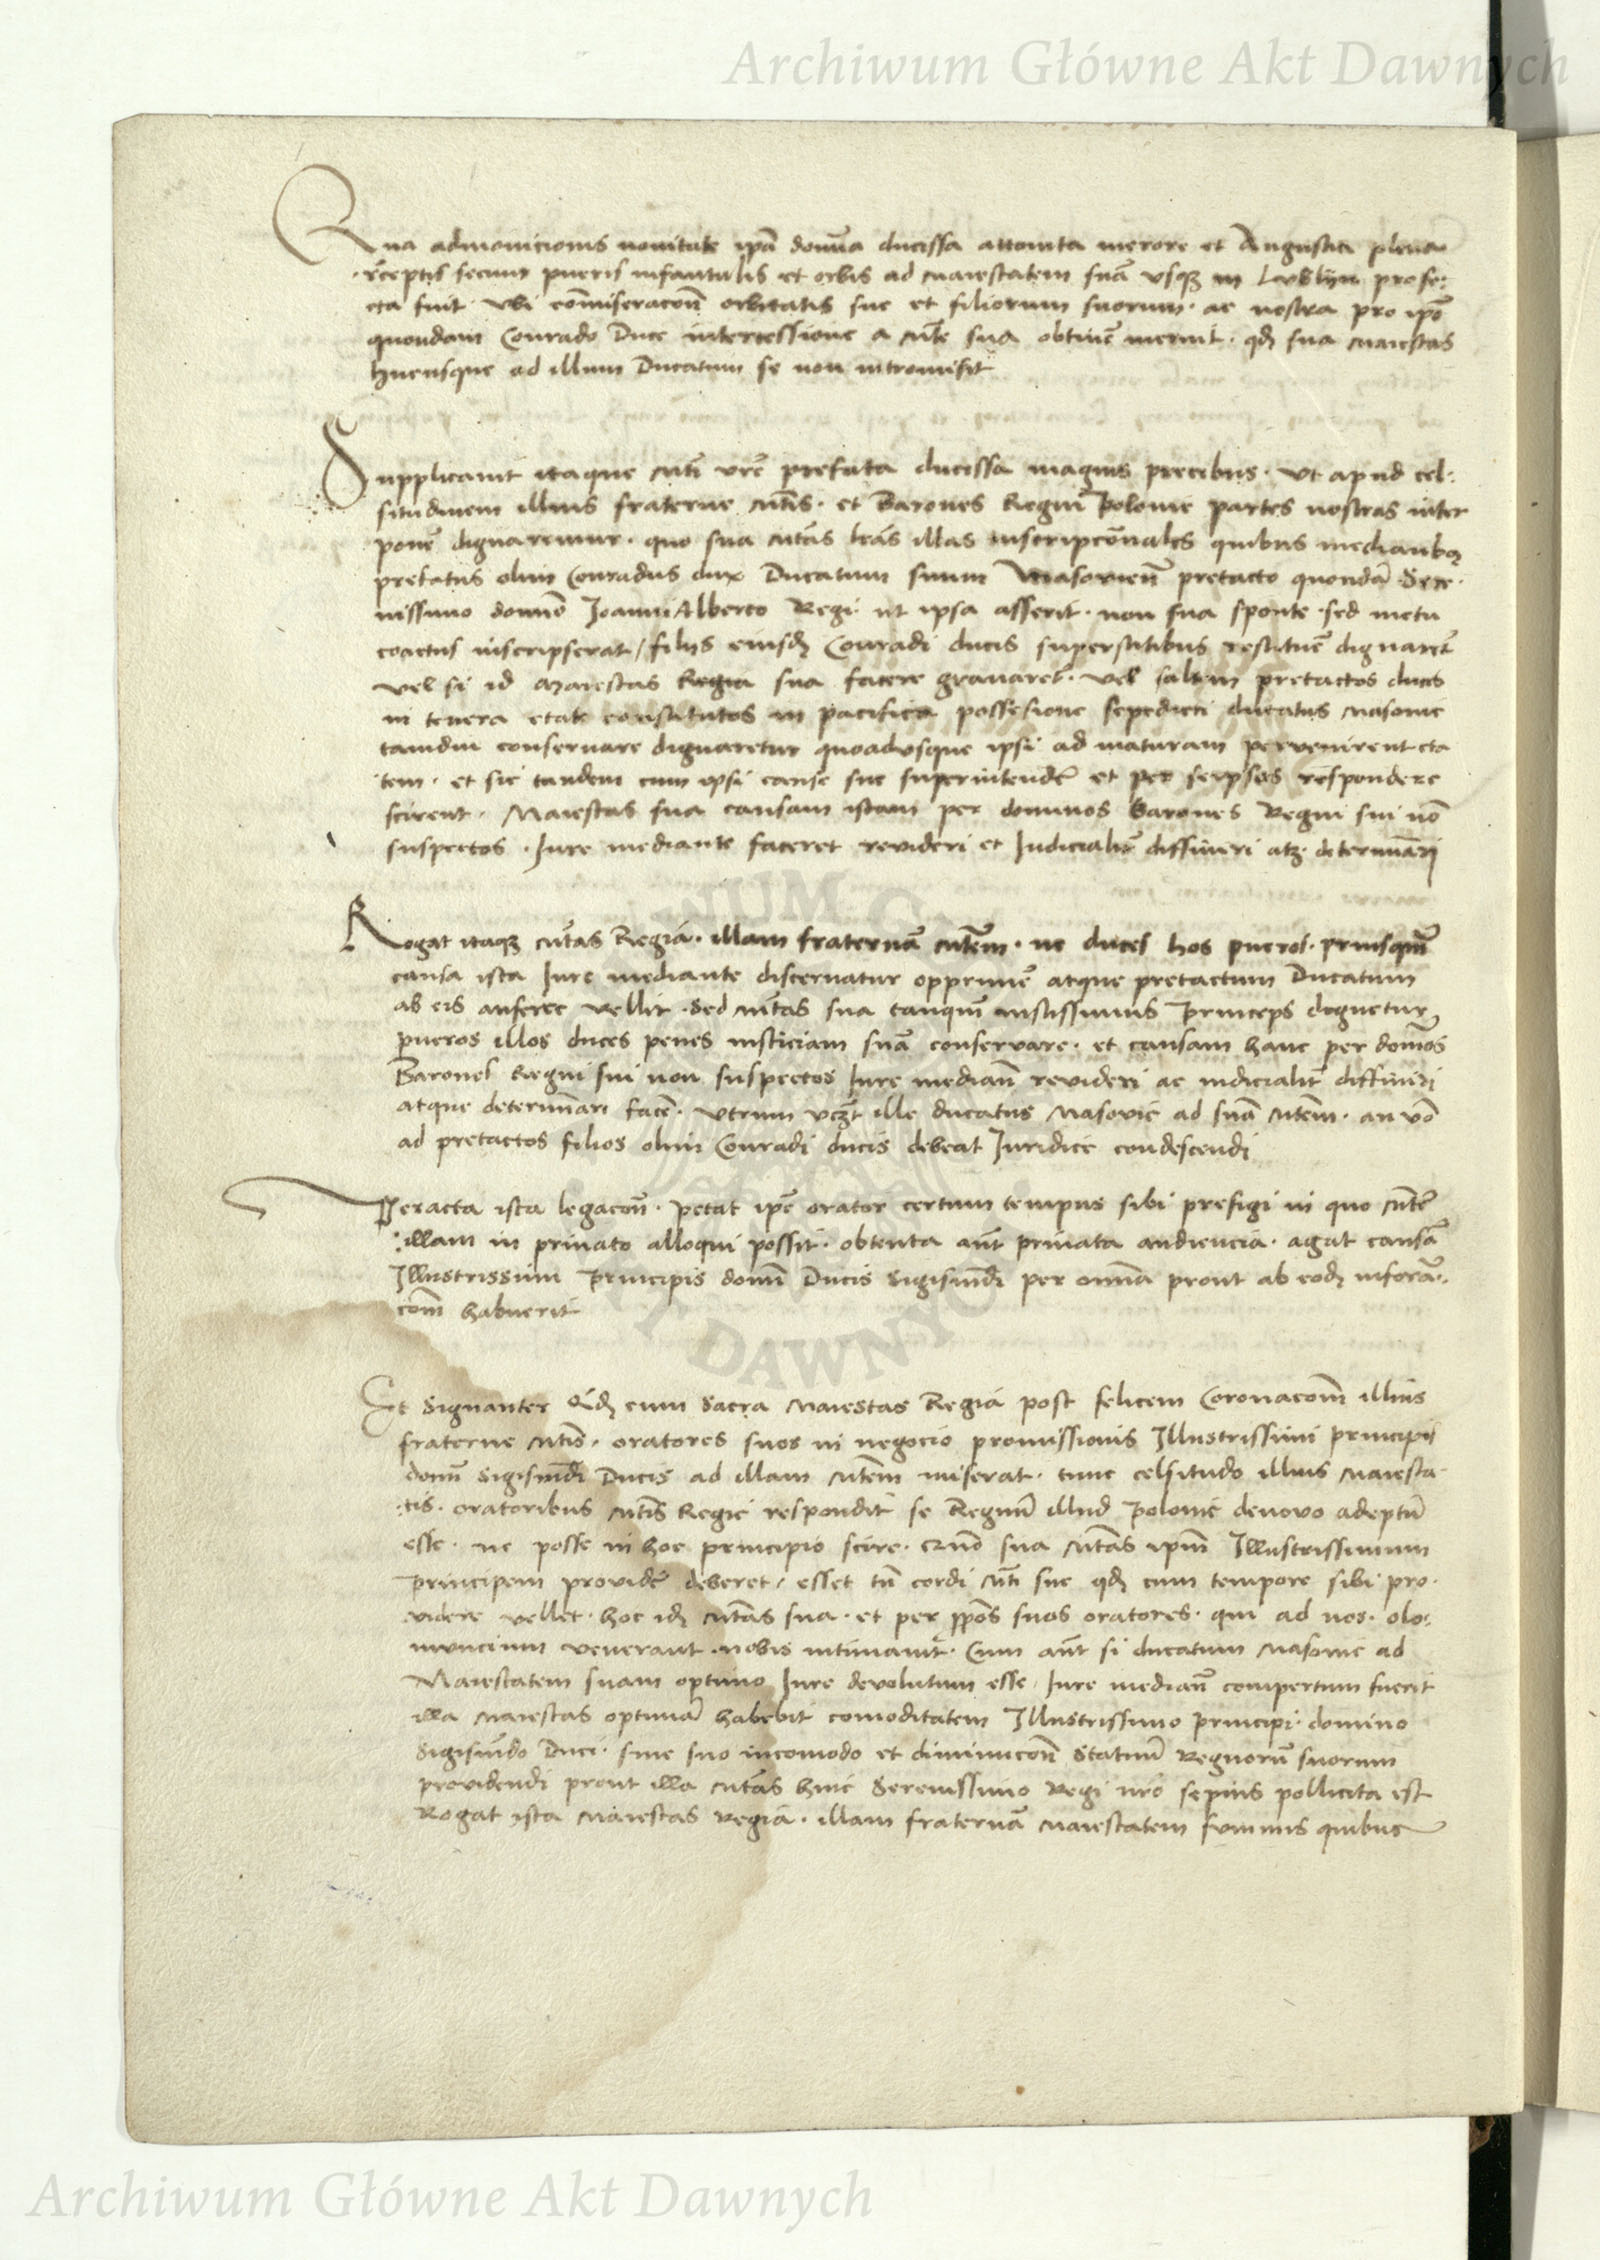 Archiwum Główne Akt Dawnych
Qua admonicionis nouitate ip̄a domīa ducissa attonita merore et Angustia plena
receptis secum pueris infantulis et orbis ad maiestatem suā vsq₃ in Lublyn profe:
cta fuit. vbi com̄iseracōn orbitatis sue et filiorum suorum. ac nostra pro ip̄o
quondam Conrado Duce intercessione a mte sua obtinē meruit. qđ sua maiestas
hucusque ad illum Ducatum se non intromisit
Supplicauit itaque mti vrē prefata ducissa magnis precibus. vt apud cel:
situdinem illius fraterne mtis. et Barones Regni Polonie partes nostras inter
ponē dignaremur. quo sua mtas lrās illas inscripcōnales quibus mediantibꝫ
prefatus olim Conradus dux Ducatum suum Masouien̄ pretacto quondā Sere.
nissimo domīo Joanni Alberto Regi. ut ipsa asserit. non sua sponte. sed metu
coactus inscripserat / filijs eiusđ Conradi ducis superstitibus restituē dignaret̄
vel si id Maiestas Regia sua facere grauaret̄. vel saltem pretactos duces
in tenera etate constitutos in pacifica possesione sepedicti ducatus Masouie
tamdiu conseruare dignaretur quoadvsque ipsi ad maturam pervenirent eta
tem. et sic tandem cum ipsi cause sue superintendē et per seipsos respondere
scirent. Maiestas sua causam istam per dominos Barones Regni sui nō
suspectos. Jure mediante faceret revideri et Judicialit̄ diffiniri atq₃ determinari
Rogat itaq₃ mtas Regia. illam fraternā mtem. ne duces hos pueros. priusqm̄
causa ista Jure mediante discernatur opprimē atque pretactum Ducatum
ab eis auferre vellit. Sed mtas sua tanqm̄ iustissimus Princeps dignetur
pueros illos duces penes iusticiam suā conservare. et causam hanc per domōs
Barones Regni sui non suspectos Jure mediān revideri ac iudicialit̄ diffiniri
atque determinari facē. vtrum vc₃t ille ducatus Masovie ad suā mtem. an vō
ad pretactos filios olim Conradi ducis debeat Juridice condescendi
Peracta ista legacōn. petat ip̄e orator certum tempus sibi prefigi in quo mtem
illam in priuato alloqui possit. obtenta aūt priuata audiencia. agat causā
Illustrissimi Principis domī Ducis Sigismdi per om̄ia prout ab eođ informā:
cōm habuerit
Et Signanter Qđ cum Sacra Maiestas Regia post felicem Coronacōm illius
fraterne mtis. oratores suos in negocio promissionis Illustrissimi principis
domī Sigismdi Ducis ad illam mtem miserat. tunc celsitudo illius maiesta
tis. oratoribus mtis Regie respondit se Regnū illud Polonie denovo adeptū
esse. ne posse in hoc principio scire. Quō sua mtas ipm̄ Illustrissimum
principem providē deberet. esset tn̄ cordi mti sue qđ cum tempore sibi pro.
videre vellet. hoc iđ mtas sua. et per pp̄os suos oratores. qui ad nos. olo:
muncium venerant. nobis intimauit. Cum aūt si ducatum Masouie ad
Maiestatem suam optimo Jure devolutum esse. Jure mediān compertum fuerit
illa maiestas optimā habebit comoditatem Illustrissimo principi. domino
Sigismūdo Duci. sine suo incomodo et diminucōn Statuū Regnorū suorum
providendi prout illa mtas huic Serenissimo Regi nrō sepius pollicita est
Rogat ista maiestas Regia. illam fraternā maiestatem summis quibus
Archiwum Główne Akt Dawnych